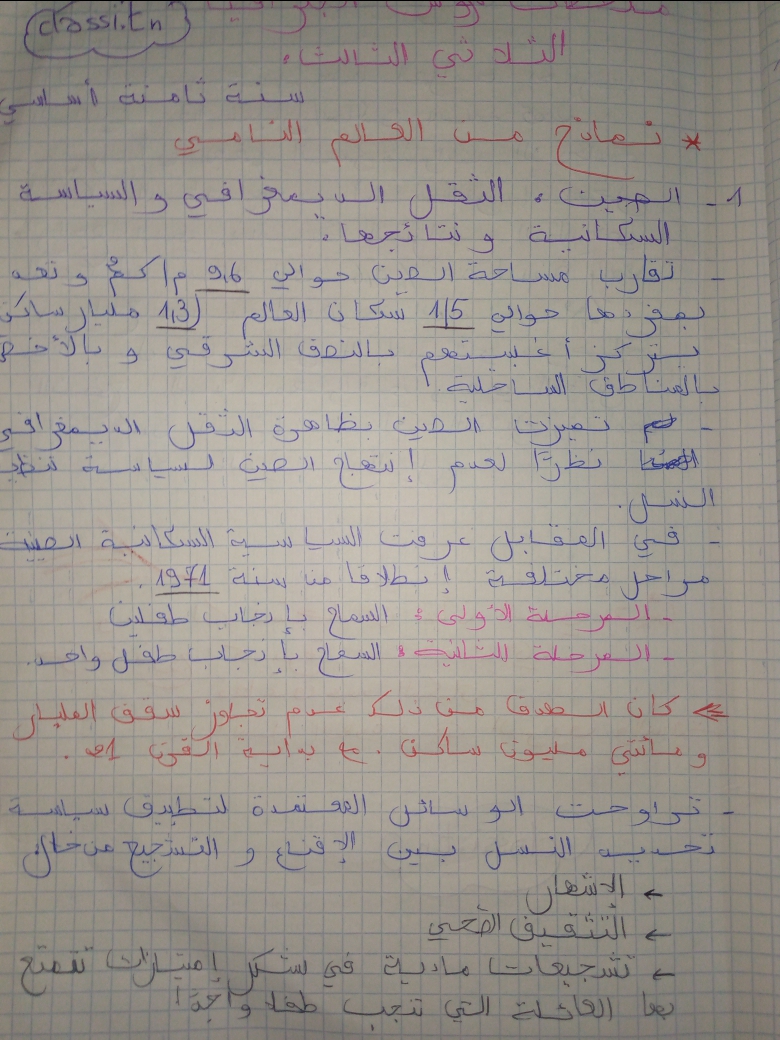 classi.tn
ملخصات دروس الجغرافيا
الثلاثي الثالث.
سنة ثامنة أساسي
* نماذج من العالم النامي
1 - الصين : الثقل الديمغرافي و السياسة
السكانية و نتائجها.
- تقارب مساحة الصين حوالي 9,6 م/كم² و تعد
بمفردها حوالي 1/5 سكان العالم (1,3 مليار ساكن
يتركز أغلبيتهم بالنصف الشرقي و بالأخص
بالمناطق الساحلية.
- تميزت الصين بظاهرة الثقل الديمغرافي
نظرًا لعدم إنتهاج الصين لسياسة تنظيم
النسل.
- في المقابل عرفت السياسية السكانية الصينية
مراحل مختلفة إنطلاقا من سنة 1971.
- المرحلة الأولى : السماح بإنجاب طفلين
- المرحلة الثانية : السماح بإنجاب طفل واحد.
كان الهدف من ذلك عدم تجاوز سقف المليار
و مائتي مليون ساكن. مع بداية القرن 21.
- تراوحت الوسائل المعتمدة لتطبيق سياسة
تحديد النسل بين الإقناع و التشجيع من خلال
← الاشهار
← التثقيف الصحي
← تشجيعات مادية في شكل إمتيازات تتمتع
بها العائلة التي تنجب طفلا واحدا